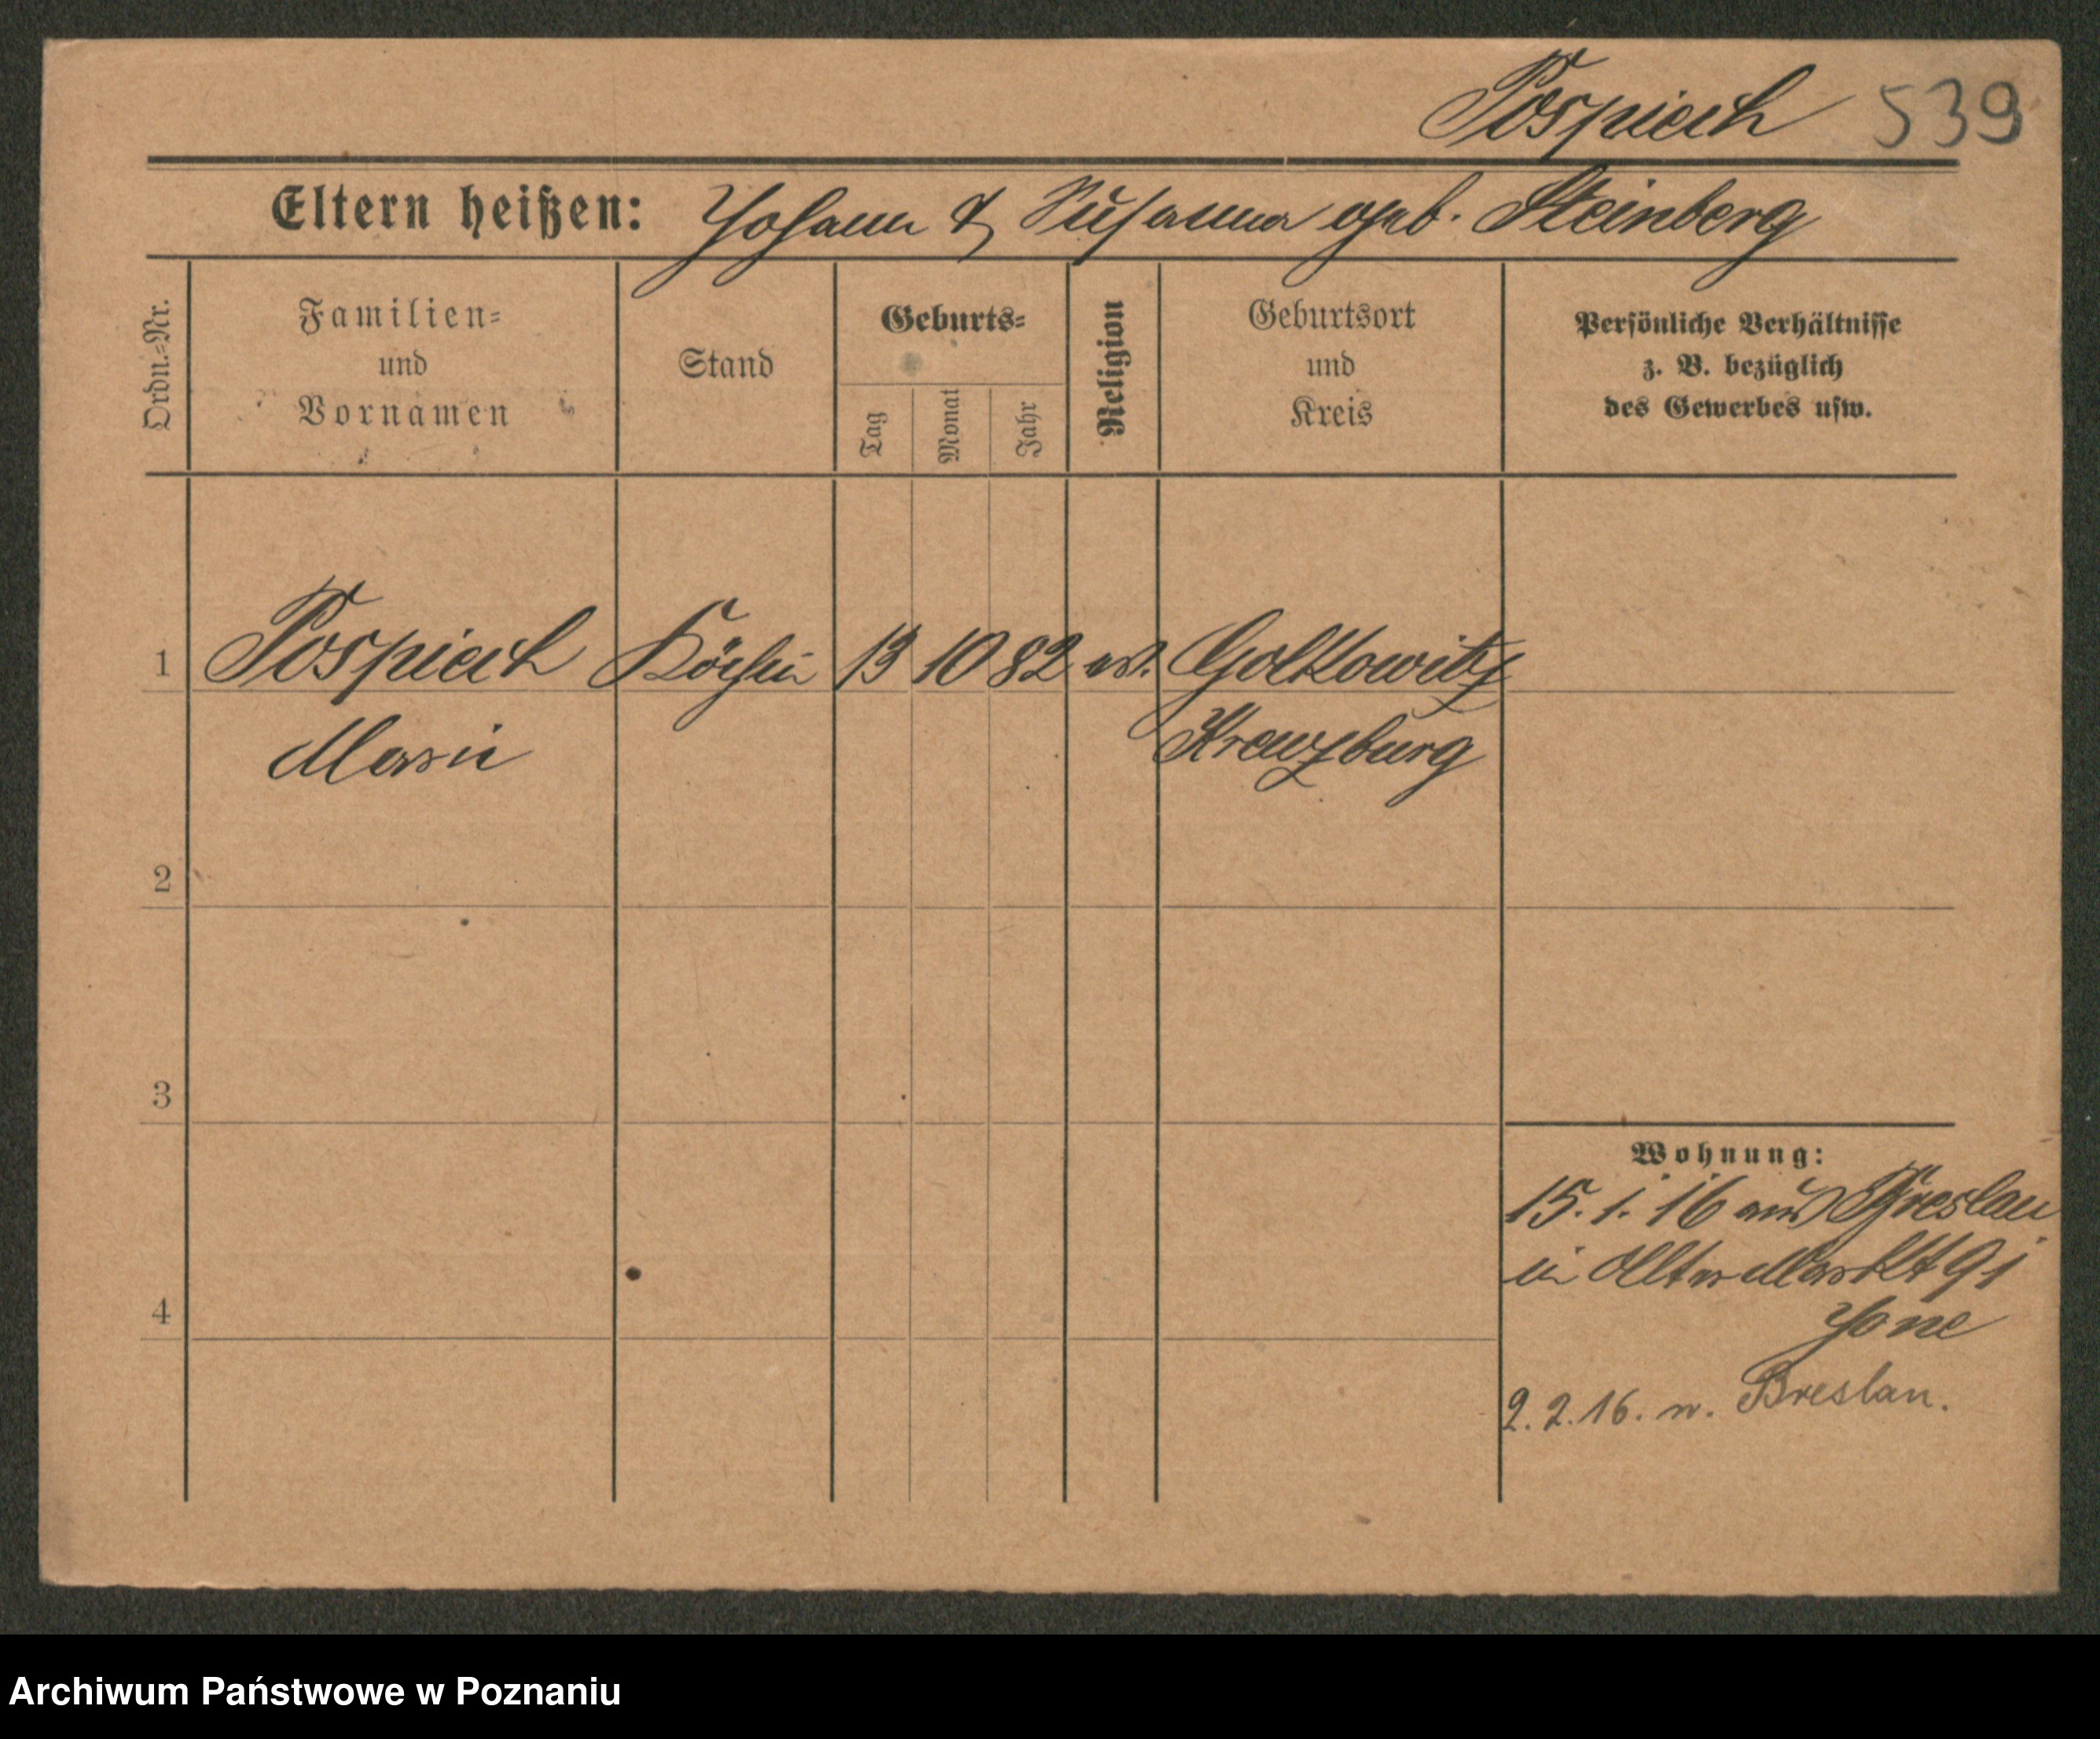 Pospiech 539
Eltern heißen: Johann & Susanna geb. Steinberg
Ordn.=Nr.
Familien=
und
Vornamen
Stand
Geburts=
Tag
Monat
Jahr
Religion
Geburtsort
und
Kreis
Persönliche Verhältnisse
z. B. bezüglich
des Gewerbes usw.
1 Pospiech Köchin 13 10 82 ev. Golkowitz
Marie Kreuzburg
2
3
Wohnung:
15. 1. 16 aus Breslau
in Alter Markt 91
4
2. 2. 16. n. Breslau.
Archiwum Państwowe w Poznaniu